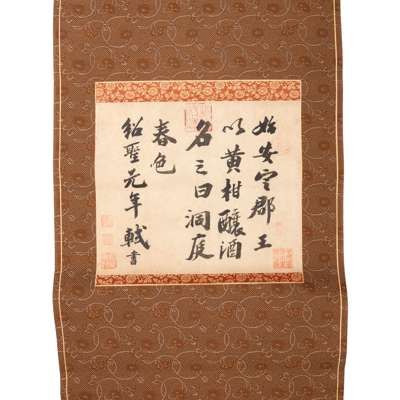 始安定郡王
以黄柑釀酒
名之曰洞庭
春色
紹聖元年 軾書